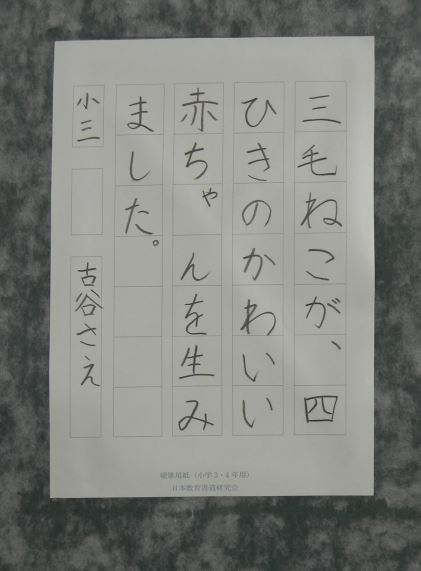 三毛ねこが、四
ひきのかわいい
赤ちゃんを生み
ました。
小三
古谷さえ
硬筆用紙（小学3・4年用）
日本教育書道研究会